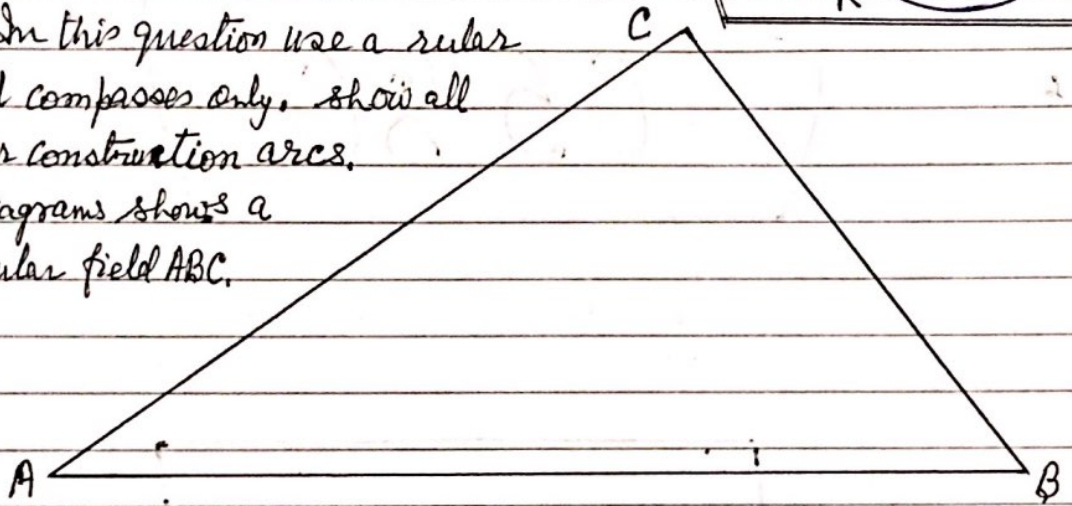 In this question use a rular
compasses only. show all
construction arcs.
shows a
field ABC.
C
A
B